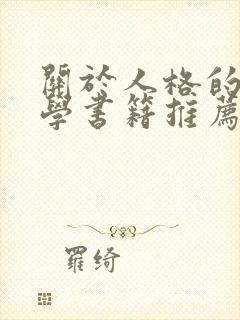 關於人格的
學書籍推薦
羅綺